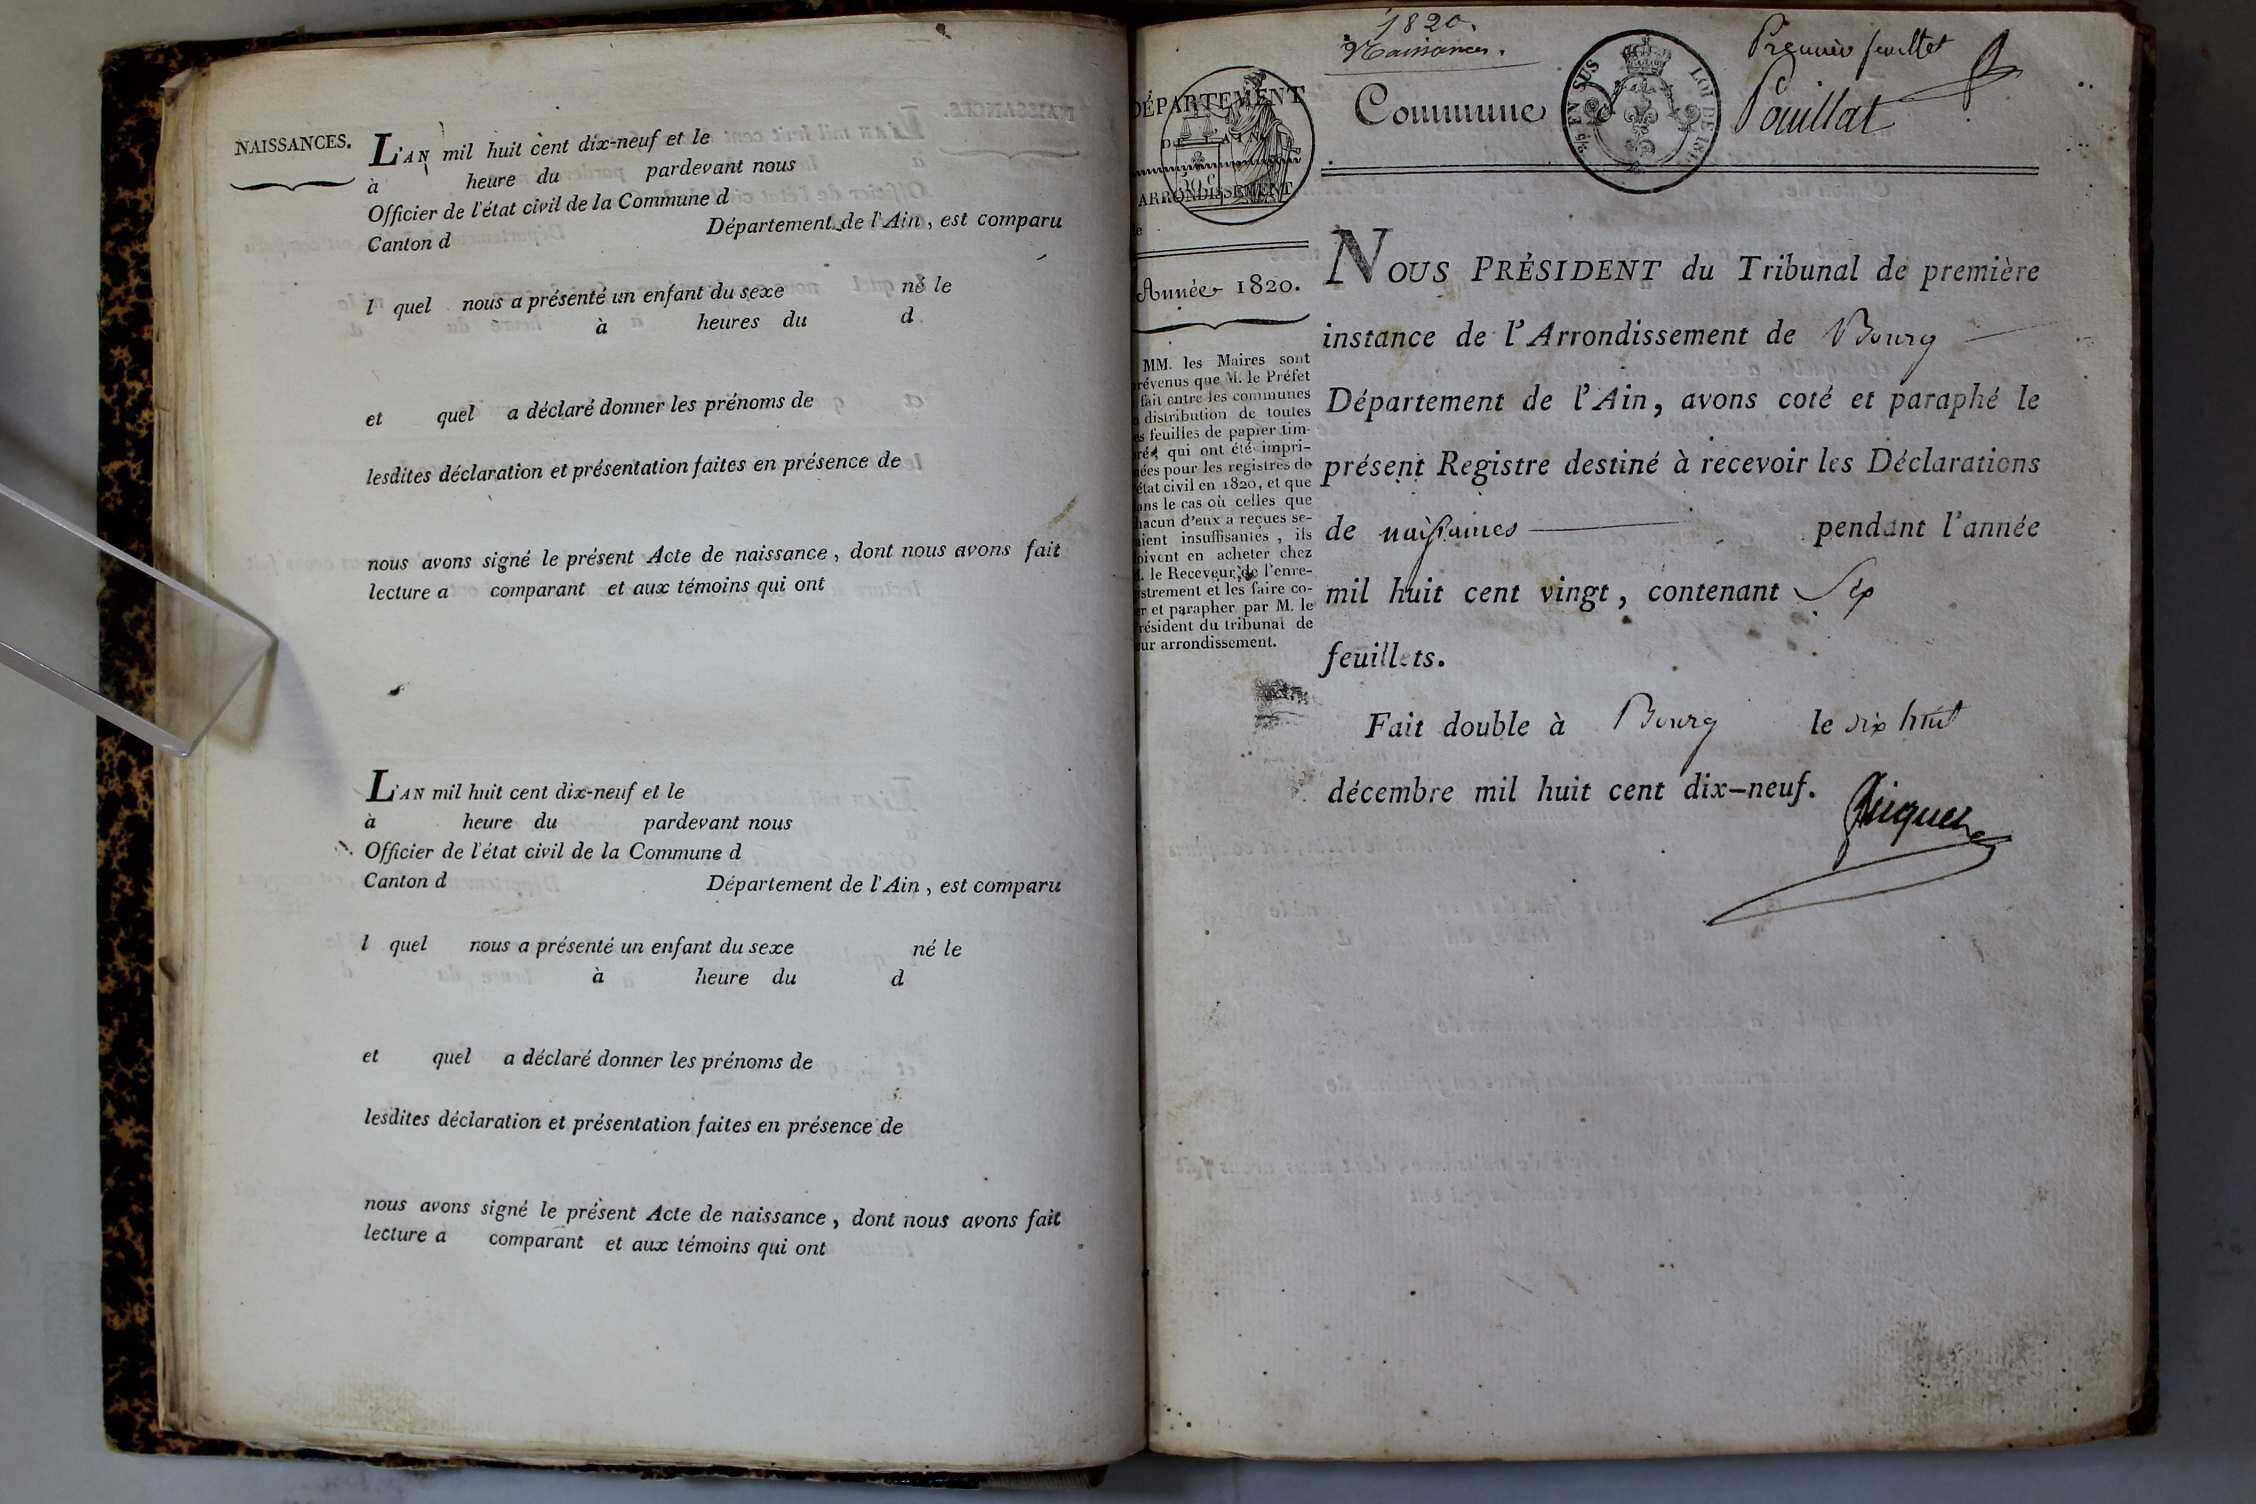 NAISSANCES.
L'AN mil huit cent dix-neuf et le
à heure du pardevant nous
Officier de l'état civil de la Commune d
Canton d Département de l'Ain, est comparu
l quel nous a présenté un enfant du sexe né le
à heures du d
et quel a déclaré donner les prénoms de
lesdites déclaration et présentation faites en présence de
nous avons signé le présent Acte de naissance, dont nous avons fait
lecture a comparant et aux témoins qui ont
L'AN mil huit cent dix-neuf et le
à heure du pardevant nous
Officier de l'état civil de la Commune d
Canton d Département de l'Ain, est comparu
l quel nous a présenté un enfant du sexe né le
à heure du d
et quel a déclaré donner les prénoms de
lesdites déclaration et présentation faites en présence de
nous avons signé le présent Acte de naissance, dont nous avons fait
lecture a comparant et aux témoins qui ont
1820.
Naissances.
Premier feuillet
DÉPARTEMENT
DE L'AIN
ARRONDISSEMENT
Commune d Pouillat
EN SUS LOI DE
Année 1820.
MM. les Maires sont
révenus que M. le Préfet
fait entre les communes
distribution de toutes
es feuilles de papier tim-
ré, qui ont été impri-
mées pour les registres de
état civil en 1820, et que
ans le cas où celles que
hacun d'eux a reçues se-
aient insuffisantes, ils
oivent en acheter chez
. le Receveur de l'enre-
istrement et les faire co-
er et parapher par M. le
résident du tribunal de
eur arrondissement.
NOUS PRÉSIDENT du Tribunal de première
instance de l'Arrondissement de Bourg
Département de l'Ain, avons coté et paraphé le
présent Registre destiné à recevoir les Déclarations
de naissances pendant l'année
mil huit cent vingt, contenant Six
feuillets.
Fait double à Bourg le dix huit
décembre mil huit cent dix-neuf.